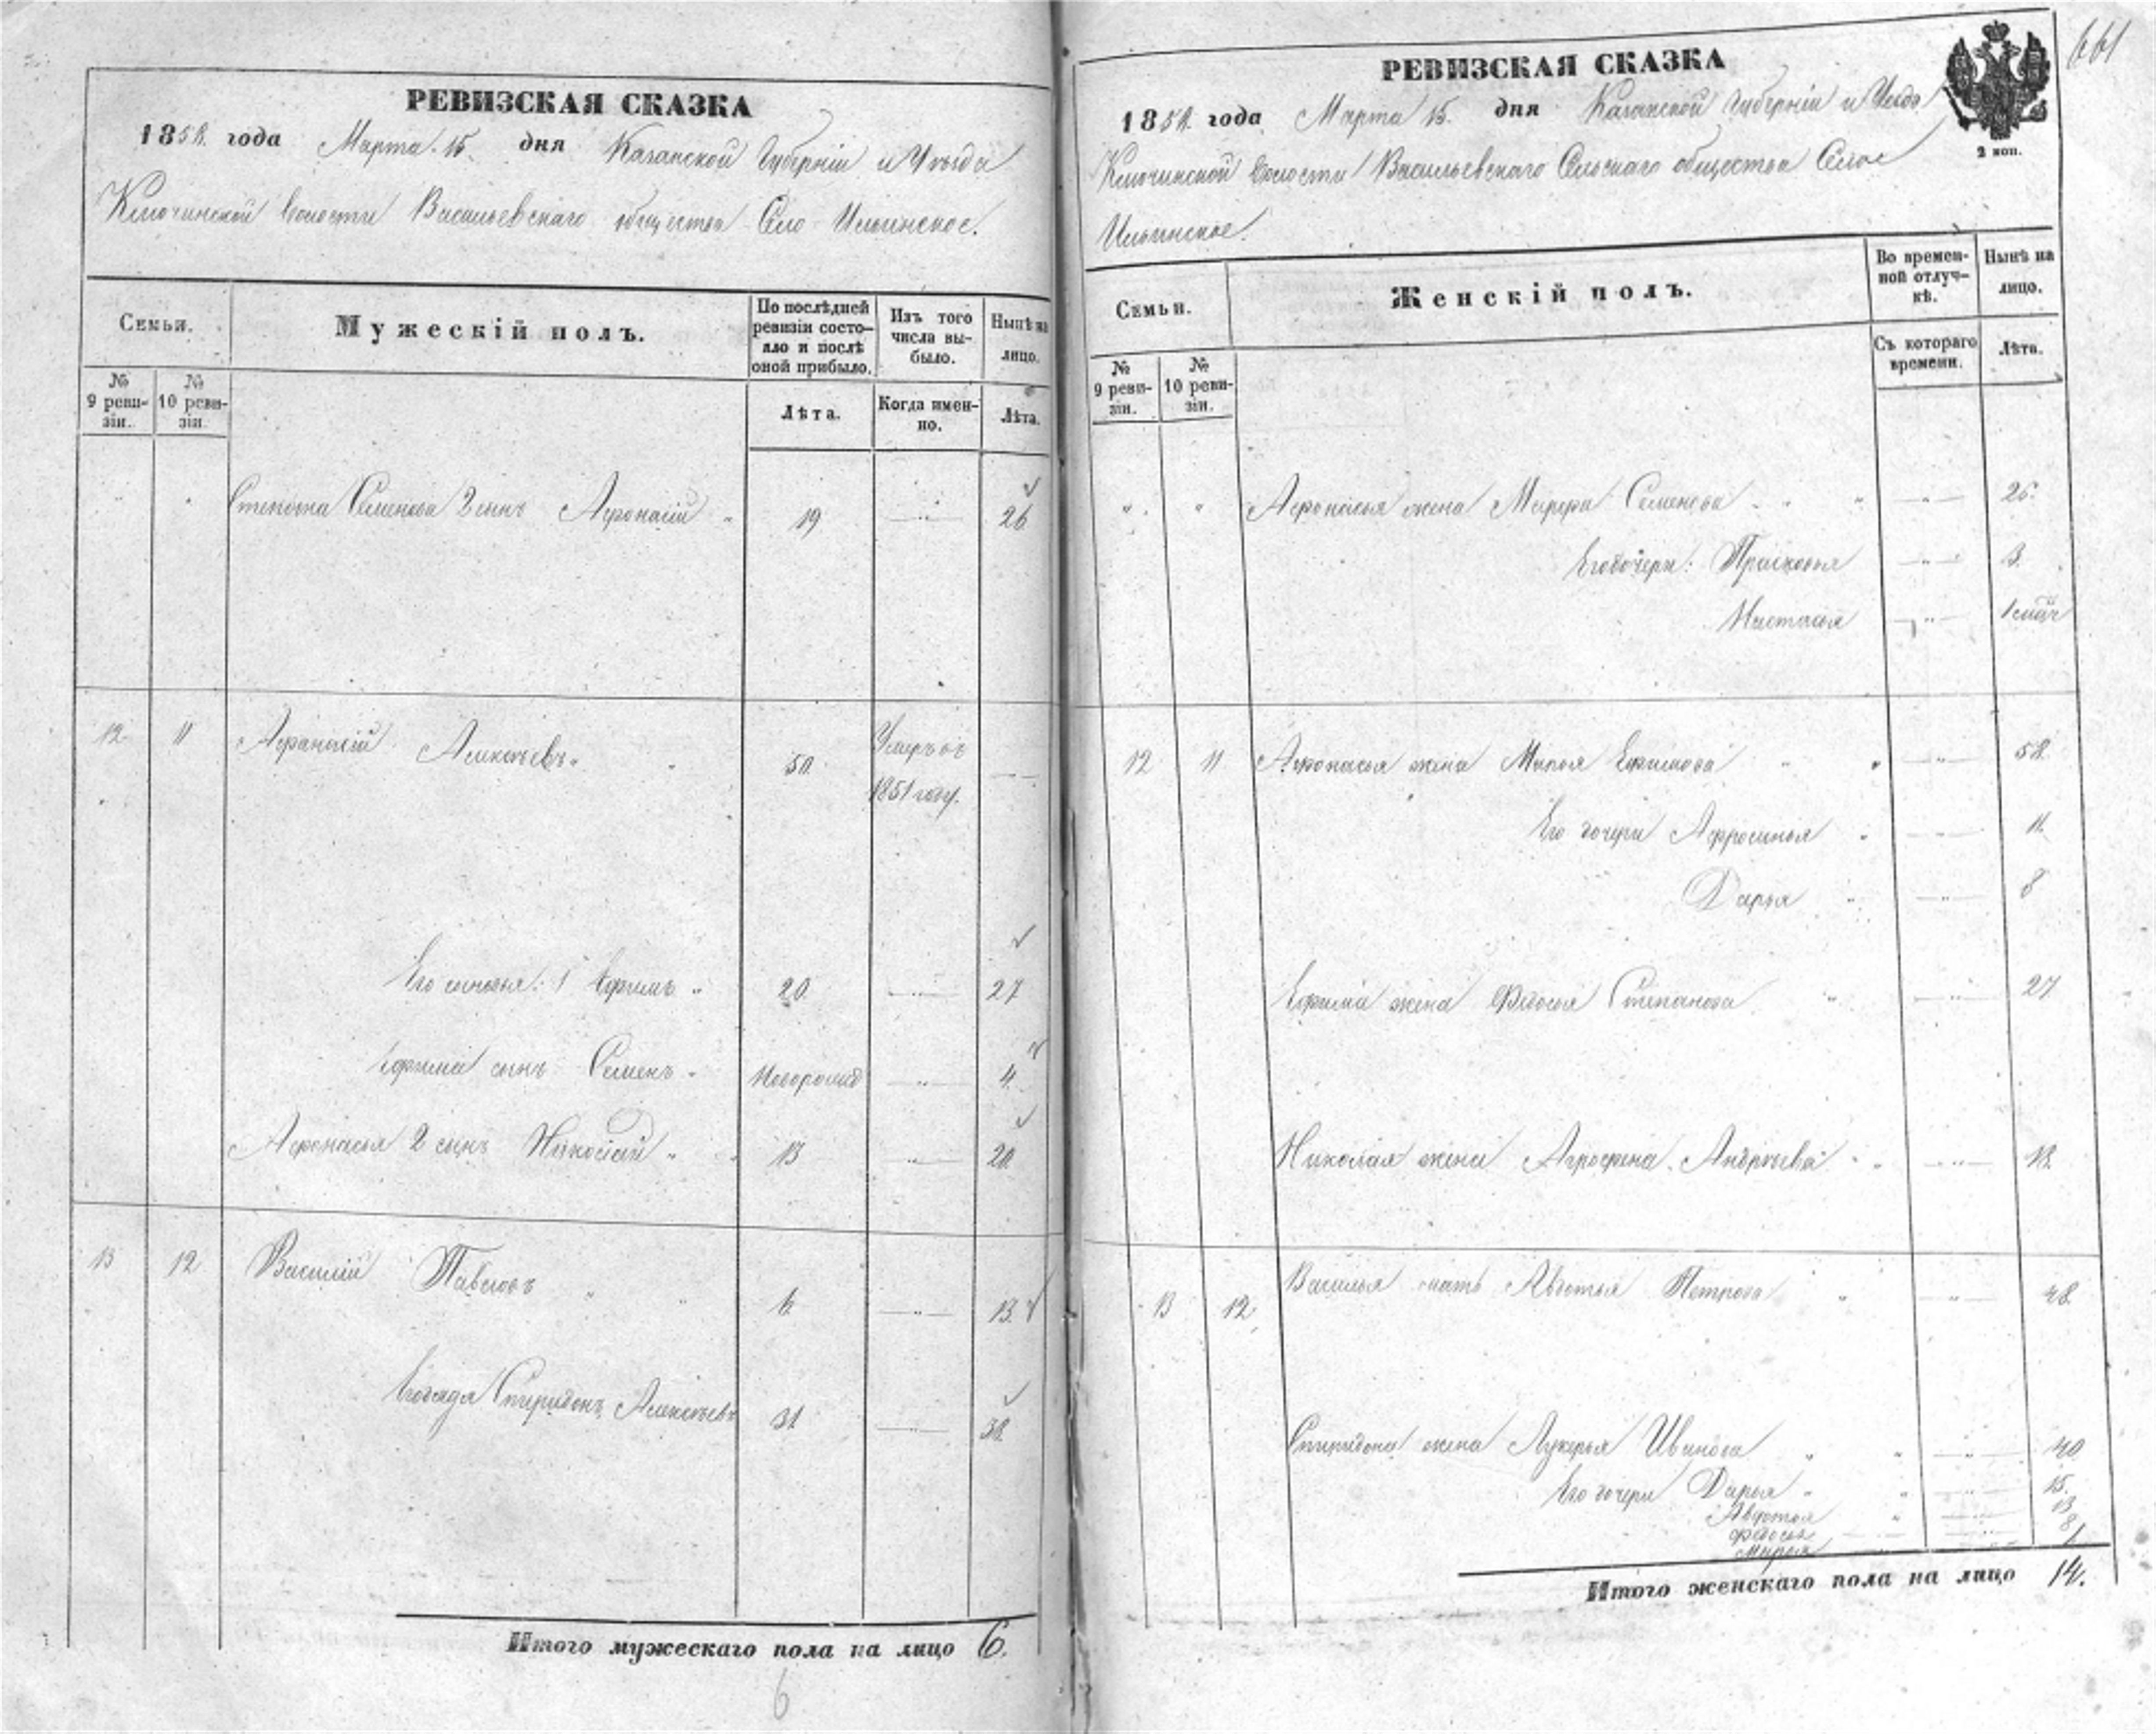 РЕВИЗСКАЯ СКАЗКА
1858. года Марта 15. дня Казанской Губерніи и Уѣзда
Ключинской волости Васильевскаго общества Село Ильинское.
Семьи.
Мужескій полъ.
По послѣдней
ревизіи состо-
яло и послѣ
оной прибыло.
Изъ того
числа вы-
было.
Нынѣ на
лицо.
№
9 реви-
зіи.
№
10 реви-
зіи.
Лѣта.
Когда имен-
но.
Лѣта.
Степана Семенова 2 сынъ Афонасій 19 26
12 11 Афанасій Алексѣевъ 50. Умеръ въ
1851 году.
Его сыновья: 1 Ефимъ 20 27
Ефима сынъ Семенъ Новорожд 4.
Афонасья 2 сынъ Николай 13 20.
13 12 Василій Павловъ 6. 13.
Его дядя Спиридонъ Алексѣевъ 31 38.
Итого мужескаго пола на лицо 6.
6
661
РЕВИЗСКАЯ СКАЗКА
2 коп.
1858. года Марта 15. дня Казанской Губерніи и Уѣзда
Ключинской волости Васильевскаго Сельскаго общества Село
Ильинское.
Семьи.
Женскій полъ.
Во времен-
ной отлуч-
кѣ.
Нынѣ на
лицо.
№
9 реви-
зіи.
№
10 реви-
зіи.
Съ котораго
времени.
Лѣта.
Афонасья жена Марфа Семенова 25.
Его дочери: Прасковья 3.
Настасья
12 11 Афонасья жена Марья Ефимова 58.
Его дочери Афросинья 11.
Дарья 8
Ефима жена Федосья Степанова 27.
Николая жена Аграфена Андрѣева 18.
13 12 Василья мать Авдотья Петрова 48.
Спиридона жена Лукерья Иванова 40
Его дочери Дарья 15.
Авдотья 13
Федосья 8
Марья 1
Итого женскаго пола на лицо 14.